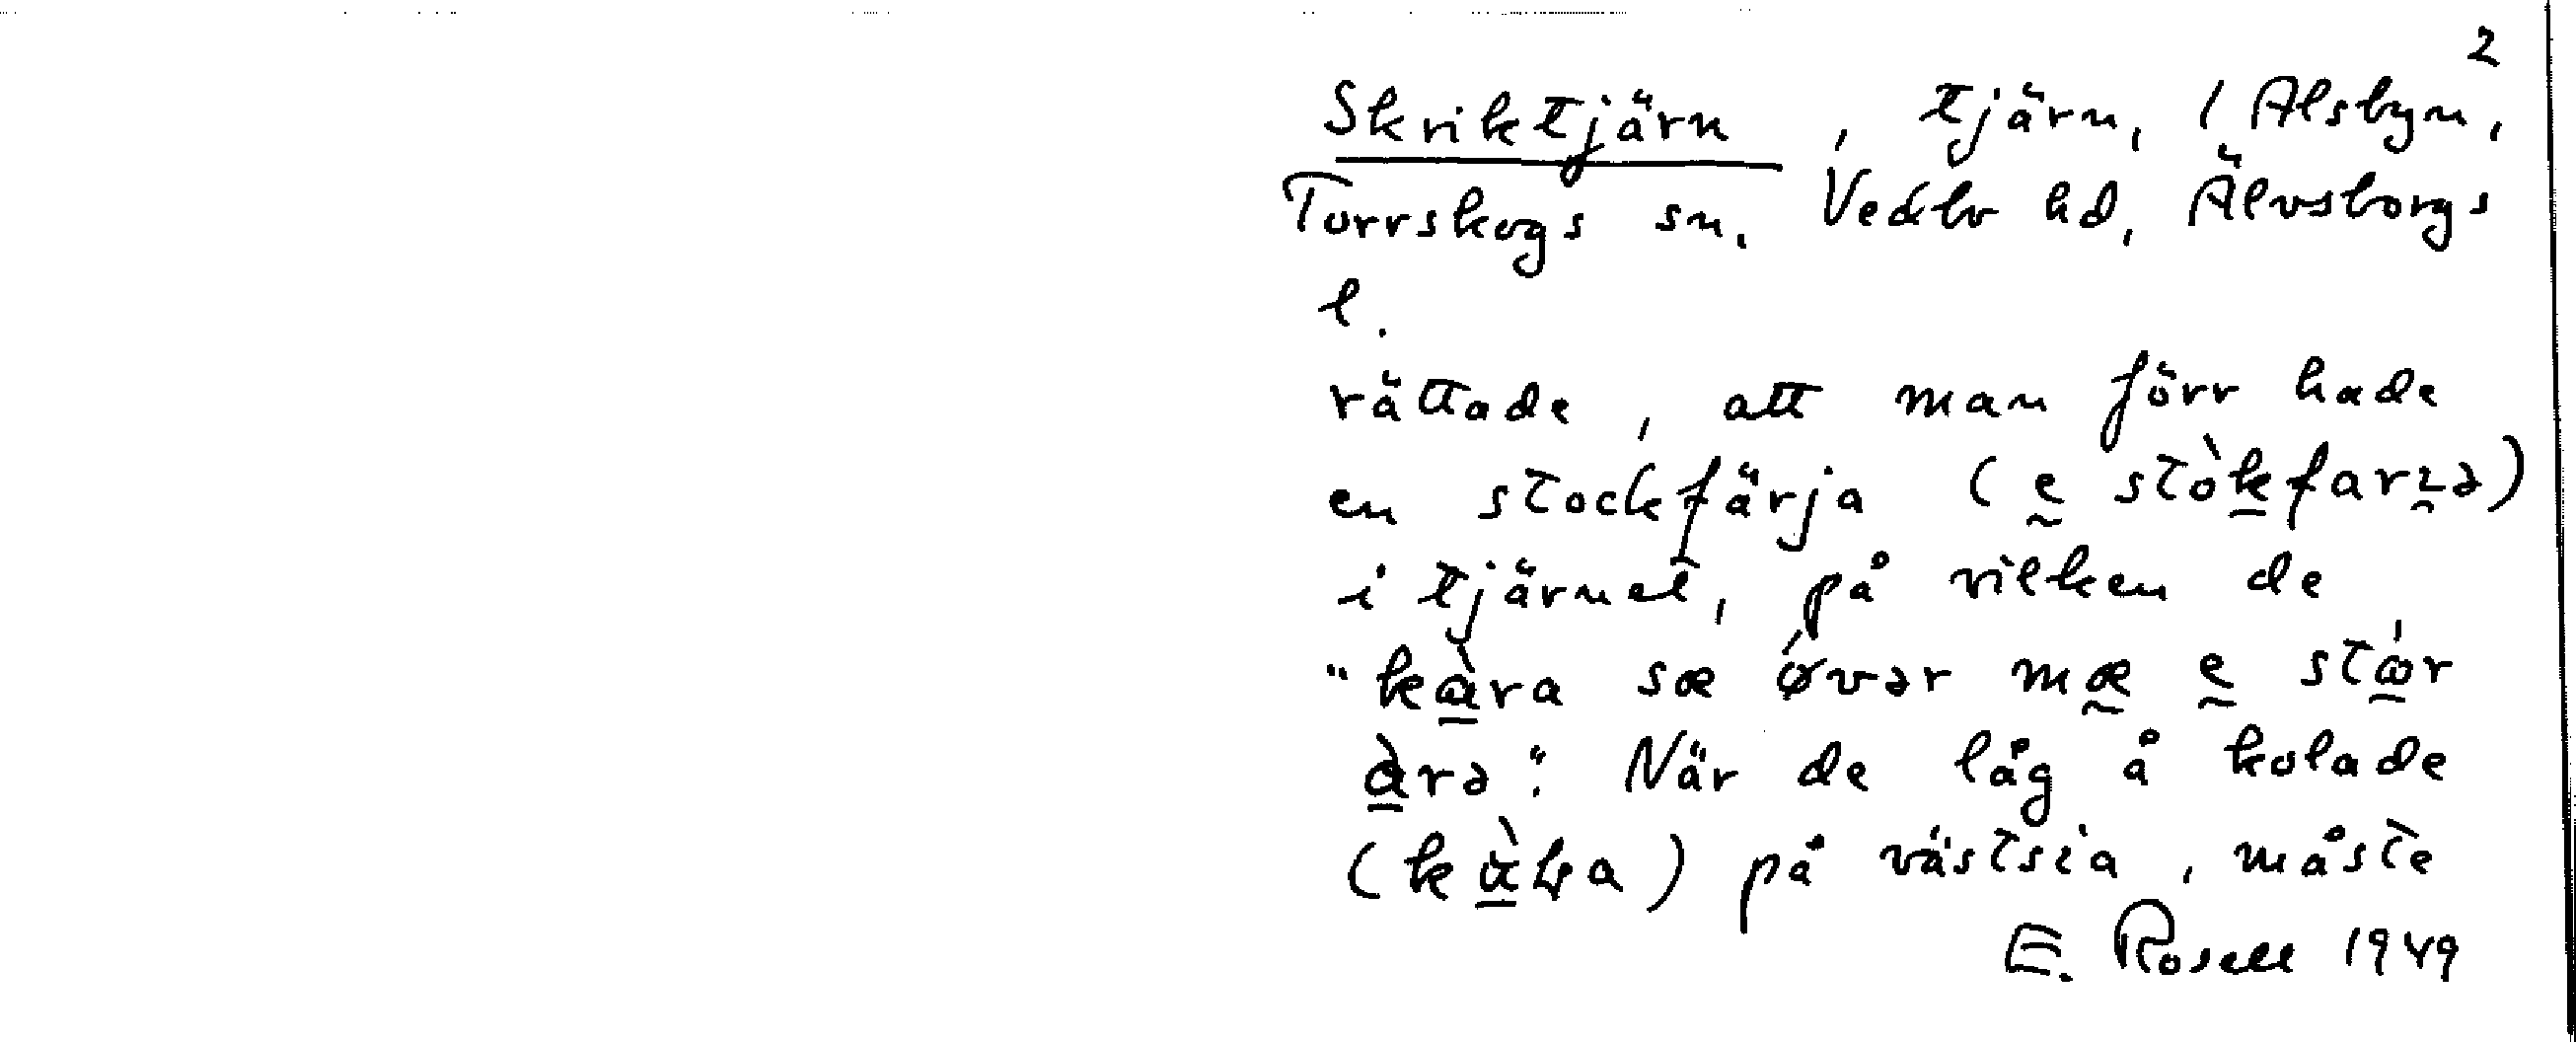 2
Skriktjärn, tjärn, / Alsbyn,
Torrskogs sn. Vedbo hd, Älvsborgs
l.
rättade, att man förr hade
en stockfärja (ḛ stòk̲farɿə)
i tjärnet, på vilken de
"kà̲ra sæ ǿvər mæ̰ ḛ stώ̲r
à̲rə". När de låg å kolade
på västsia, måste
E. Rosell 1949